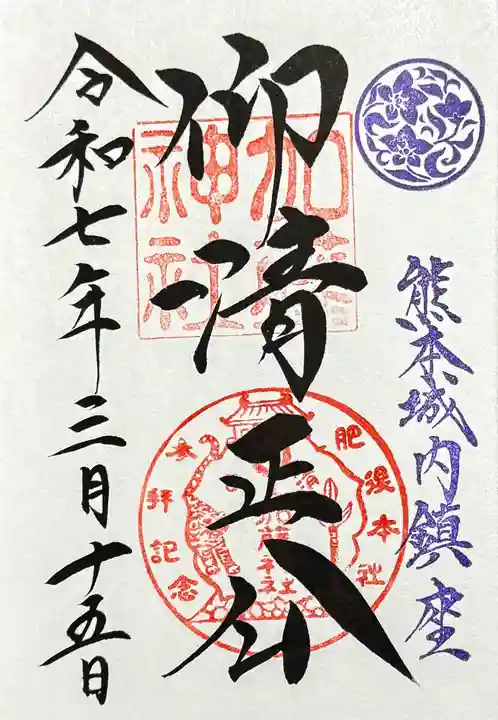 熊本城内鎮座
仰清正公
加藤神社
参拝記念
加藤神社
令和七年三月十五日